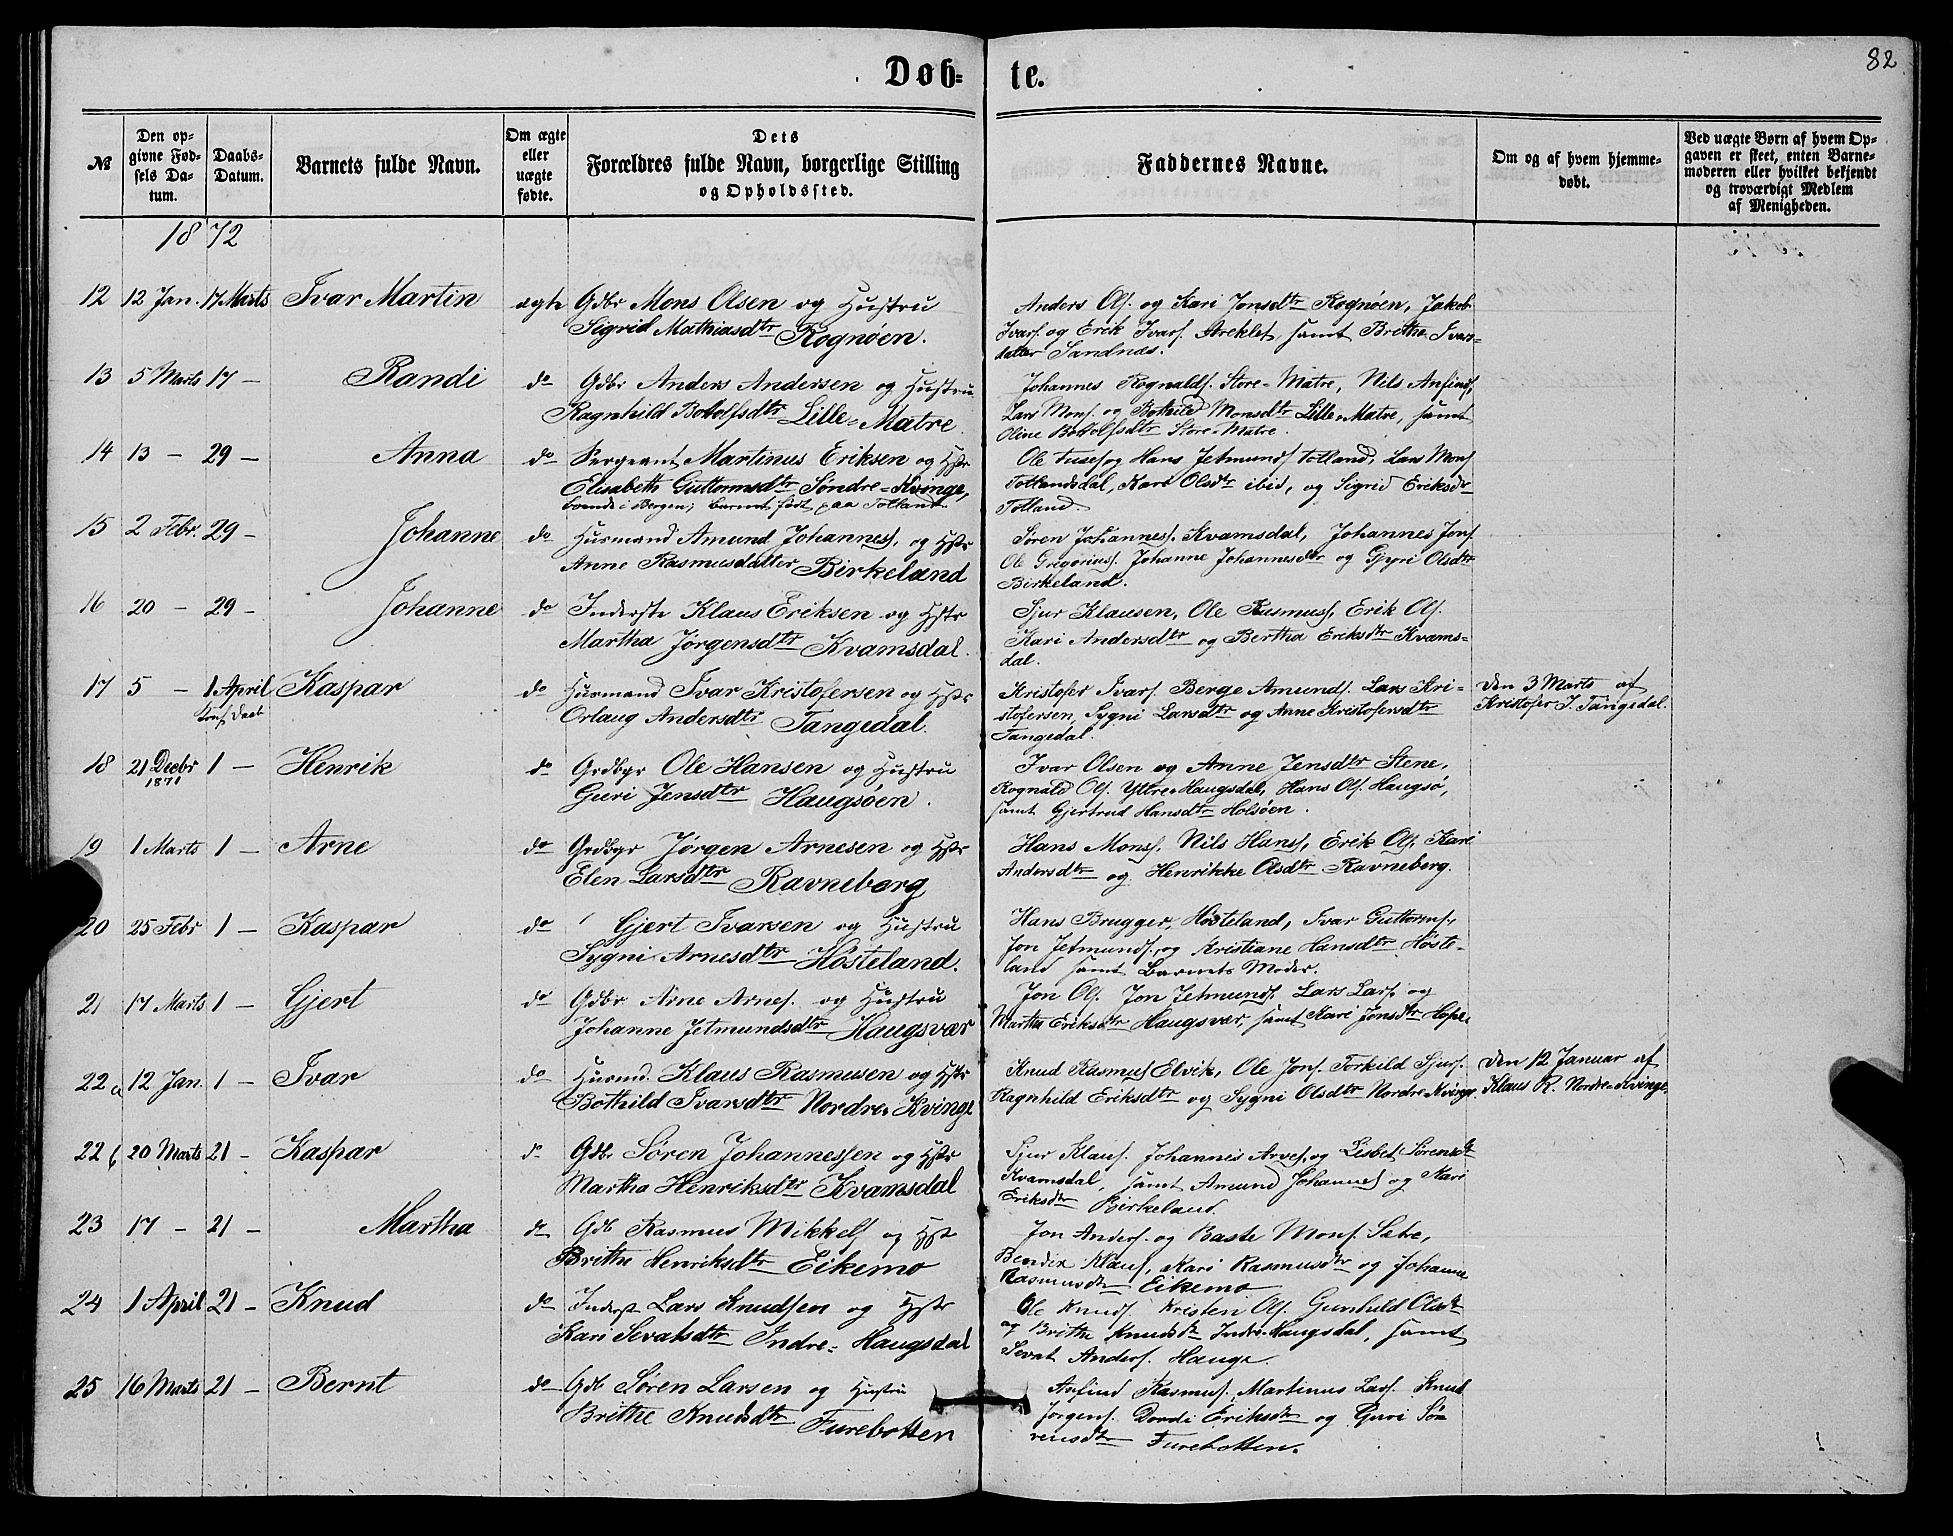 82
Døb-
te.
№
Den op-
givne Fød-
sels Da-
tum.
Daabs-
Datum.
Barnets fulde Navn.
Om ægte
eller
uægte
fødte.
Dets
Forældres fulde Navn, borgerlige Stilling
og Opholdssted.
Faddernes Navne.
Om og af hvem hjemme-
døbt.
Ved uægte Børn af hvem Op-
gaven er skeet, enten Barne-
moderen eller hvilket bekjendt
og troværdigt Medlem
af Menigheden.
1872
12 12 Jan. 17 Marts Ivar Martin ægte Gdbr Mons Olsen og Hustru
Sigrid Mathiasdtr Rognøen.
Anders Ols. og Kari Jonsdtr Rognøen, Jakob
Ivars. og Erik Ivars. Areklet samt Brithe Ivars-
datter Sandnæs.
13 5 Marts 17 — Randi do Gdbr Anders Andersen og Hustru
Ragnhild Botolfsdtr Lille-Matre
Johannes Rognalds. Store-Matre, Nils Anfinds.
Lars Mons. og Bothild Monsdtr Lille-Matre, samt
Oline Botolfsdtr Store-Matre.
14 13 — 29 — Anna do Sergeant Martinus Eriksen og Hstr
Elisabeth Guttormsdtr Søndre-Kvinge,
boende i Bergen; Barnet født paa Totland.
Ole Tuses. og Hans Jetmunds. Totland, Lars Mons.
Totlandsdal, Kari Olsdtr ibid, og Sigrid Eriksdtr
Totland.
15 2 Febr. 29 — Johanne do Husmand Amund Johannes. og Hstr
Anne Rasmusdatter Birkeland
Søren Johannes. Kvamsdal, Johannes Jons.
Ole Gregorius. Johanne Johannesdtr og Gyri Olsdtr
Birkeland.
16 20 — 29 — Johanne do Inderste Klaus Eriksen og Hstr
Martha Jørgensdtr Kvamsdal.
Sjur Klausen, Ole Rasmuss. Erik Ols.
Kari Andersdtr og Bertha Eriksdtr Kvams-
dal.
17 5 — 1 April Kaspar do Husmand Ivar Kristofersen og Hstr
Orlaug Andersdtr Tangedal.
Kristofer Ivars. Berge Amunds. Lars Kri-
stofersen, Sygni Larsdtr og Anne Kristofersdtr
Tangedal.
Den 3 Marts af
Kristofer I. Tangedal.
18 21 Decbr 1 — Henrik do Grdbgr Ole Hansen og Hustru
1871
Guri Jensdtr Haugsøen.
Ivar Olsen og Anne Jensdtr Stene,
Rognald Ols. Yttre-Haugsdal, Hans Ols. Haugsø,
samt Gjertrud Hansdtr Holsøen.
19 1 Marts 1 — Arne do Grdbgr Jørgen Arnesen og Hstr
Elen Larsdtr Ravneberg
Hans Monss. Nils Hanss. Erik Ols. Kari
Andersdtr og Henrikke Olsdtr Ravneberg.
20 25 Febr 1 — Kaspar do Gjert Ivarsen og Hustru
Sygni Arnesdtr Høsteland.
Hans Brugger, Høsteland, Ivar Guttorms.,
Jon Jetmunds. og Kristiane Hansdtr Høste-
land samt Barnets Moder.
21 17 Marts 1 — Gjert do Gdbr Arne Arnes. og Hustru
Johanne Jetmundsdtr Haugsvær
Jon Ols. Jon Jetmunds. Lars Lars. og
Martha Eriksdtr Haugsvær, samt Kari Jonsdtr Hope.
22 a 12 Jan. 1 — Ivar do Husmd. Klaus Rasmusen og Hstr
Bothild Ivarsdtr Nordre-Kvinge
Knud Rasmuss Elvik, Ole Jons. Torkild Sjurs.
Ragnhild Eriksdtr og Sygni Olsdtr Nordre-Kvinge.
Den 12 Januar af
Klaus R. Nordre-Kvinge.
22 b 20 Marts 21 — Kaspar do Gdbr Søren Johannessen og Hstr
Martha Henriksdtr Kvamsdal
Sjur Klaus. Johannes Arves. og Lisbet Sørensdtr
Kvamsdal, samt Amund Johannes. og Kari
Eriksdtr Birkeland.
23 17 — 21 — Martha do Gdb Rasmus Mikkels. og Hstr
Brithe Henriksdtr Eikemo
Jon Anders. og Baste Mons. Sætre,
Bendix Klaus, Kari Rasmusdtr og Johanne
Rasmusdtr Eikemo
24 1 April 21 — Knud do Inderst Lars Knudsen og Hstr
Kari Sevatsdtr Indre-Haugsdal
Ole Knuds. Kristen Ols. Gunhild Olsdtr
og Brithe Knudsdtr Indre-Haugsdal, samt
Sevat Anders. Hauge.
25 16 Marts 21 — Bernt do Gdb Søren Larsen og Hustru
Brithe Knudsdtr Furebotten
Anfind Rasmus. Martinus Lars. Knud
Jørgens. Dordi Eriksdtr og Guri Sø-
rensdtr Furebotten.